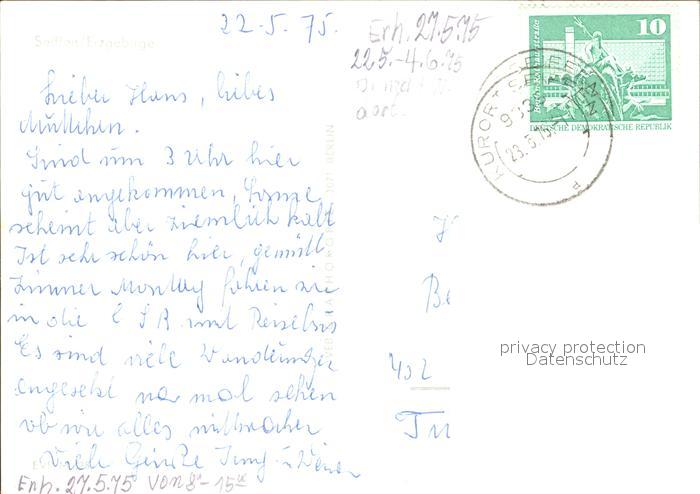 22.5. 75.
Erh. 27.5.75
22.5.-4.6.75
Seiffen/Erzgebirge
10
DEUTSCHE DEMOKRATISCHE REPUBLIK
KURORT SEIFFEN
933
23.5.75
Lieber Hans, liebes
Muttchen.
Sind um 3 Uhr hier
gut angekommen, Sonne
scheint aber ziemlich kalt
Ist sehr schön hier, gemütl
Zimmer Montag fahren wir
in die ČSR mit Reisebus
Es sind viele Wanderungen
angesetzt na mal sehen
ob wir alles mitmachen
Viele Grüße
Erh. 27.5.75 von 8⁰⁰-15⁰⁰
BERLIN
Be
402
Tu
privacy protection
Datenschutz